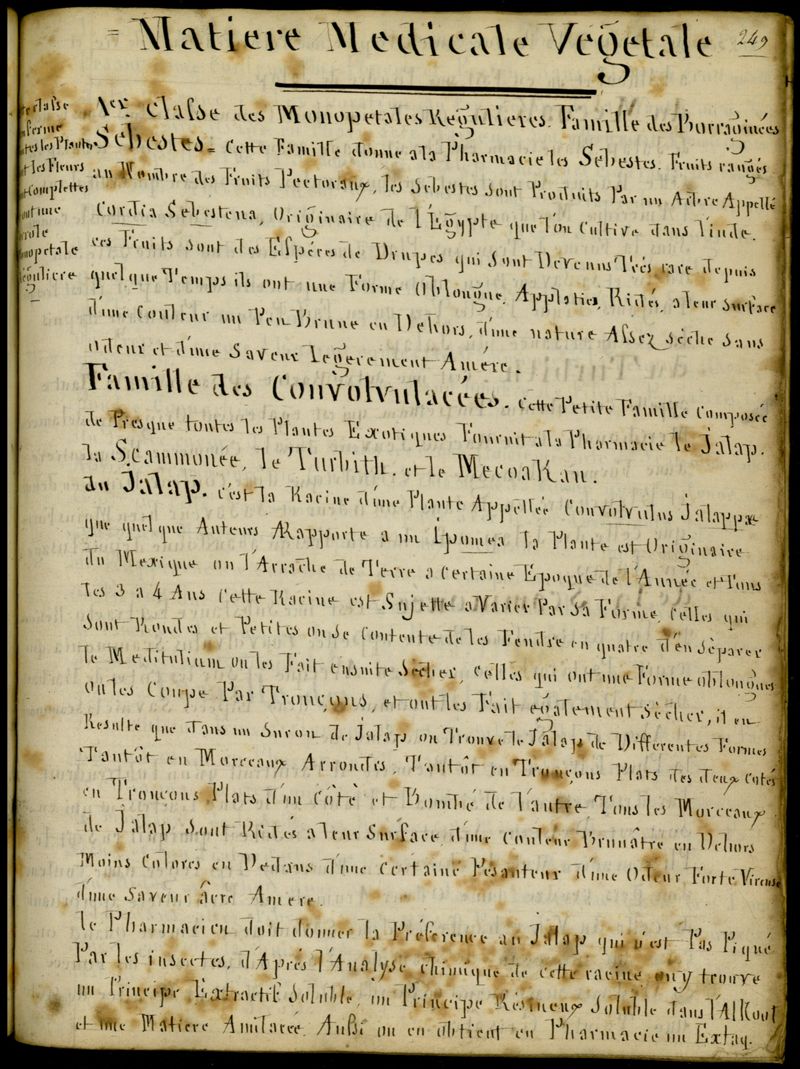 = Matiere Medicale Vegetale 249
1ere Classe
renferme
toutes les Plantes
et les Fleurs
sont Complettes
ont une
corole
monopetale
réguliere
Iere Classe des Monopetales Regulieres. Famille des Borraginées
Sébestes = Cette Famille donne a la Pharmacie les Sebestes. Fruits rangés
au Nombre des Fruits Pectoraux, les Sebestes sont Produits Par un Arbre Appellé
Cordia Sebestena, Originaire de l'Egypte que l'on Cultive dans l'inde.
ces Fruits sont des Espéces de Drupes qui sont Devenus Trés rare depuis
quelque Temps ils ont une Forme Oblongue, Applaties, Ridés, a leur Surface
d'une Couleur un Peu Brune en Dehors, d'une nature Assez sèche sans
odeur et d'une Saveur Legerement Amére.
Famille des Convolvulacées. Cette Petite Famille Composée
de Presque toutes les Plantes Exotiques Fournit a la Pharmacie le Jalap.
la Scammonée, le Turbith. et le Mecoakan.
du Jalap. c'est la Racine d'une Plante Appellée Convolvulus Jalappæ
que quelque Auteurs Rapporte a un Ipomea la Plante est Originaire
du Mexique on l'Arrache de Terre a Certaine Epoque de l'Année et Tous
les 3 a 4 Ans Cette Racine est Sujette a Varier Par sa Forme, Celles qui
sont Rondes et Petites on se Contente de les Fendre en quatre d'en Séparer
le Meditulium on les Fait ensuite Sécher, Celles qui ont une Forme oblongues
on les Coupe Par Tronçons, et ont les Fait egalement Sécher, il en
Résulte que dans un Suron de Jalap on Trouve le Jalap de Differentes Formes
Tantôt en Morceaux Arrondes, Tantôt en Tronçons Plats des deux Cotés
en Troncons Plats d'un Côté et Bombé de l'autre, Tous les Morceaux
de Jalap sont Ridés a leur Surface d'une Couleur Brunâtre en Dehors
Moins Colorés en Dedans d'une Certaine Pésanteur d'une Odeur Forte Vireuse
d'une Saveur âcre Amere.
le Pharmacien doit donner la Préférence au Jalap qui n'est Pas Piqué
Par les insectes, d'Aprés l'Analyse chimique de cette racine on y trouve
un Principe Extractif Soluble, un Principe Résineux Soluble dans l'Alkool
et une Matiere Amilacée. Aussi on en obtient en Pharmacie un Extaq.